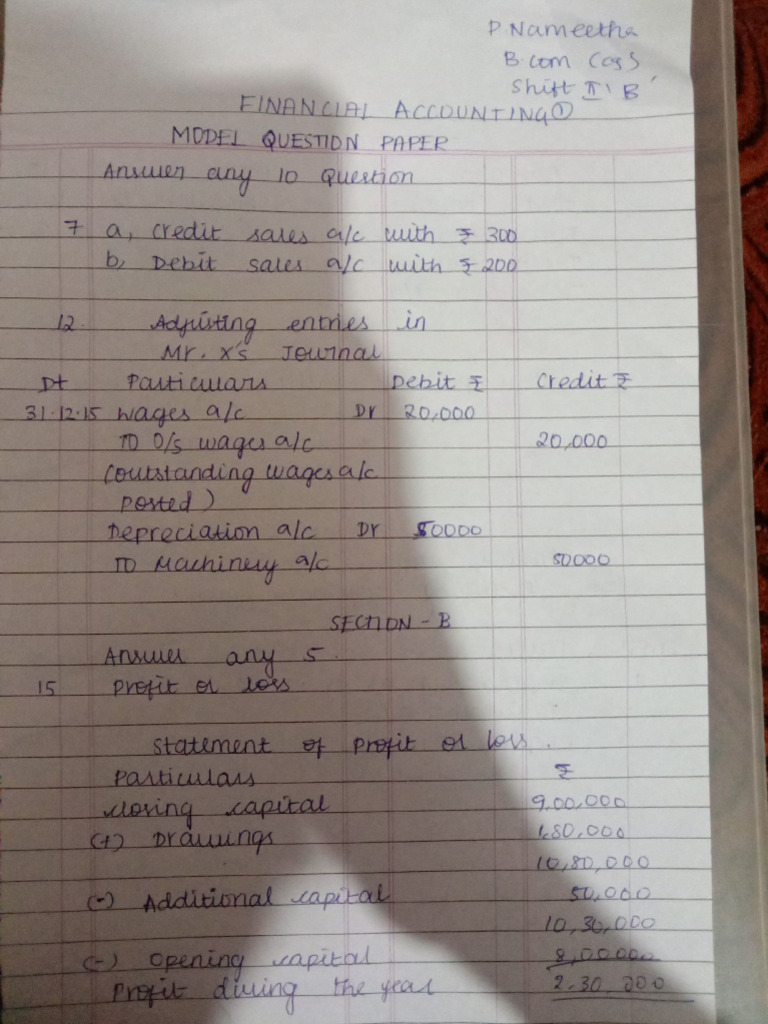 P. Nameetha
B.com (cs)
Shift II 'B'
FINANCIAL ACCOUNTING ①
MODEL QUESTION PAPER
Answer any 10 Question
7 a, Credit sales a/c with ₹ 300
b, Debit sales a/c with ₹ 200
12. Adjusting entries in
Mr. X's Journal
Dt Particulars Debit ₹ Credit ₹
31.12.15 Wages a/c Dr 20,000
TO O/S wages a/c 20,000
(outstanding wages a/c
posted)
Depreciation a/c Dr 50000
TO Machinery a/c 50000
SECTION - B
Answer any 5.
15 Profit or loss
Statement of Profit or loss.
Particulars ₹
closing capital 9,00,000
(+) Drawings 1,80,000
10,80,000
(-) Additional capital 50,000
10,30,000
(-) Opening capital 8,00000
Profit during the year 2,30,000